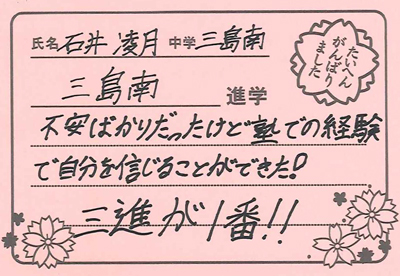 氏名 石井 凌月 中学 三島南
たいへん
がんばり
ました
三島南 進学
不安ばかりだったけど塾での経験
で自分を信じることができた!
三進が1番!!